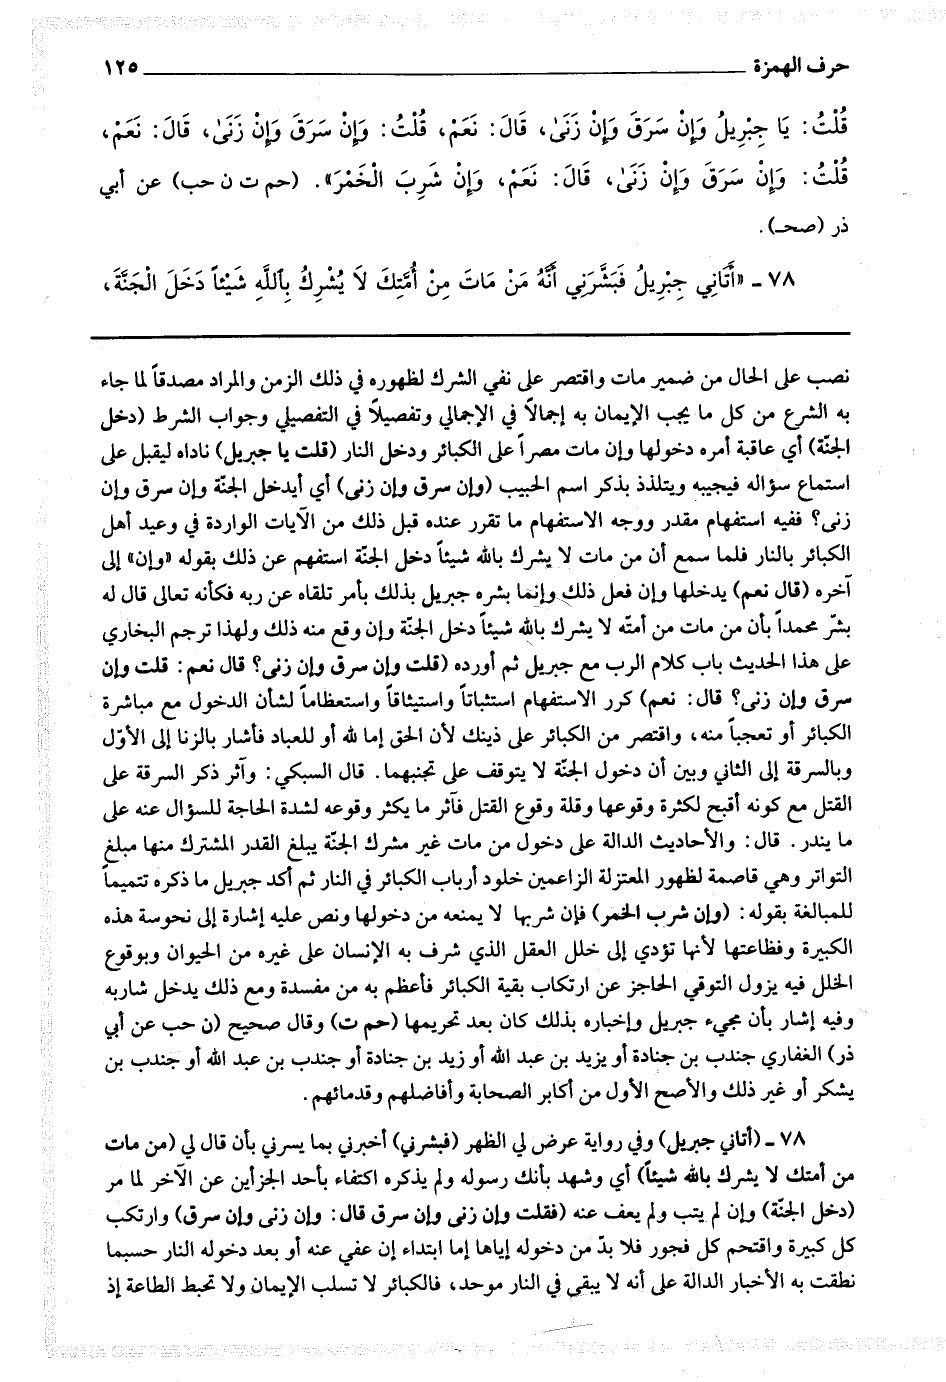 حرف الهمزة ١٢٥
قُلْتُ: يَا جِبْرِيلُ وَإِنْ سَرَقَ وَإِنْ زَنَىٰ، قَالَ: نَعَمْ، قُلْتُ: وَإِنْ سَرَقَ وَإِنْ زَنَىٰ، قَالَ: نَعَمْ،
قُلْتُ: وَإِنْ سَرَقَ وَإِنْ زَنَىٰ، قَالَ: نَعَمْ، وَإِنْ شَرِبَ الْخَمْرَ». (حم ت ن حب) عن أبي
ذر (صحـ).
٧٨ ـ «أَتَانِي جِبْرِيلُ فَبَشَّرَنِي أَنَّهُ مَنْ مَاتَ مِنْ أُمَّتِكَ لَا يُشْرِكُ بِٱللَّهِ شَيْئاً دَخَلَ الْجَنَّةَ،
نصب على الحال من ضمير مات واقتصر على نفي الشرك لظهوره في ذلك الزمن والمراد مصدقاً لما جاء
به الشرع من كل ما يجب الإيمان به إجمالاً في الإجمالي وتفصيلاً في التفصيلي وجواب الشرط (دخل
الجنّة) أي عاقبة أمره دخولها وإن مات مصراً على الكبائر ودخل النار (قلت يا جبريل) ناداه ليقبل على
استماع سؤاله فيجيبه ويتلذذ بذكر اسم الحبيب (وإن سرق وإن زنى) أي أيدخل الجنّة وإن سرق وإن
زنى؟ ففيه استفهام مقدر ووجه الاستفهام ما تقرر عنده قبل ذلك من الآيات الواردة في وعيد أهل
الكبائر بالنار فلما سمع أن من مات لا يشرك بالله شيئاً دخل الجنّة استفهم عن ذلك بقوله «وإن» إلى
آخره (قال نعم) يدخلها وإن فعل ذلك وإنما بشره جبريل بذلك بأمر تلقاه عن ربه فكأنه تعالى قال له
بشّر محمداً بأن من مات من أمته لا يشرك بالله شيئاً دخل الجنّة وإن وقع منه ذلك ولهذا ترجم البخاري
على هذا الحديث باب كلام الرب مع جبريل ثم أورده (قلت وإن سرق وإن زنى؟ قال نعم: قلت وإن
سرق وإن زنى؟ قال: نعم) كرر الاستفهام استثباتاً واستيثاقاً واستعظاماً لشأن الدخول مع مباشرة
الكبائر أو تعجباً منه، واقتصر من الكبائر على ذينك لأن الحق إما لله أو للعباد فأشار بالزنا إلى الأوّل
وبالسرقة إلى الثاني وبين أن دخول الجنّة لا يتوقف على تجنبهما. قال السبكي: وآثر ذكر السرقة على
القتل مع كونه أقبح لكثرة وقوعها وقلة وقوع القتل فآثر ما يكثر وقوعه لشدة الحاجة للسؤال عنه على
ما يندر. قال: والأحاديث الدالة على دخول من مات غير مشرك الجنّة يبلغ القدر المشترك منها مبلغ
التواتر وهي قاصمة لظهور المعتزلة الزاعمين خلود أرباب الكبائر في النار ثم أكد جبريل ما ذكره تتميماً
للمبالغة بقوله: (وإن شرب الخمر) فإن شربها لا يمنعه من دخولها ونص عليه إشارة إلى نحوسة هذه
الكبيرة وفظاعتها لأنها تؤدي إلى خلل العقل الذي شرف به الإنسان على غيره من الحيوان وبوقوع
الخلل فيه يزول التوقي الحاجز عن ارتكاب بقية الكبائر فأعظم به من مفسدة ومع ذلك يدخل شاربه
وفيه إشار بأن مجيء جبريل وإخباره بذلك كان بعد تحريمها (حم ت) وقال صحيح (ن حب عن أبي
ذر) الغفاري جندب بن جنادة أو يزيد بن عبد الله أو زيد بن جنادة أو جندب بن عبد الله أو جندب بن
يشكر أو غير ذلك والأصح الأول من أكابر الصحابة وأفاضلهم وقدمائهم.
٧٨ ـ (أتاني جبريل) وفي رواية عرض لي الظهر (فبشرني) أخبرني بما يسرني بأن قال لي (من مات
من أمتك لا يشرك بالله شيئاً) أي وشهد بأنك رسوله ولم يذكره اكتفاء بأحد الجزأين عن الآخر لما مر
(دخل الجنّة) وإن لم يتب ولم يعف عنه (فقلت وإن زنى وإن سرق قال: وإن زنى وإن سرق) وارتكب
كل كبيرة واقتحم كل فجور فلا بدّ من دخوله إياها إما ابتداء إن عفي عنه أو بعد دخوله النار حسبما
نطقت به الأخبار الدالة على أنه لا يبقى في النار موحد، فالكبائر لا تسلب الإيمان ولا تحبط الطاعة إذ